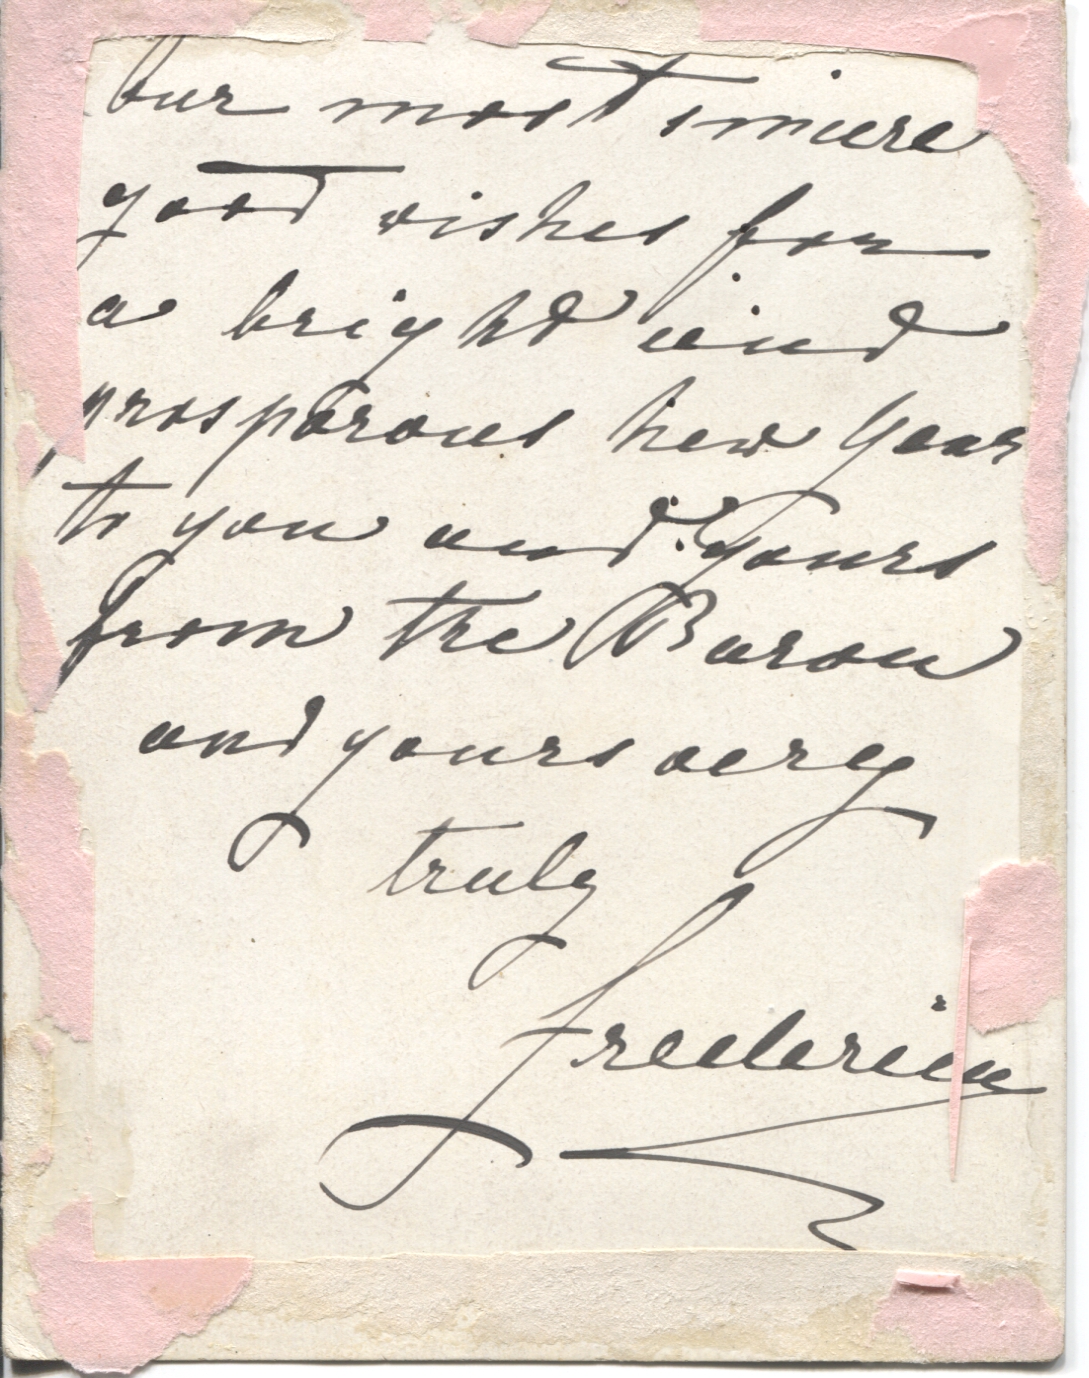 our most sincere
good wishes for
a bright and
prosperous new Year
to you and yours
from the Baron
and yours very
truly
Frederica